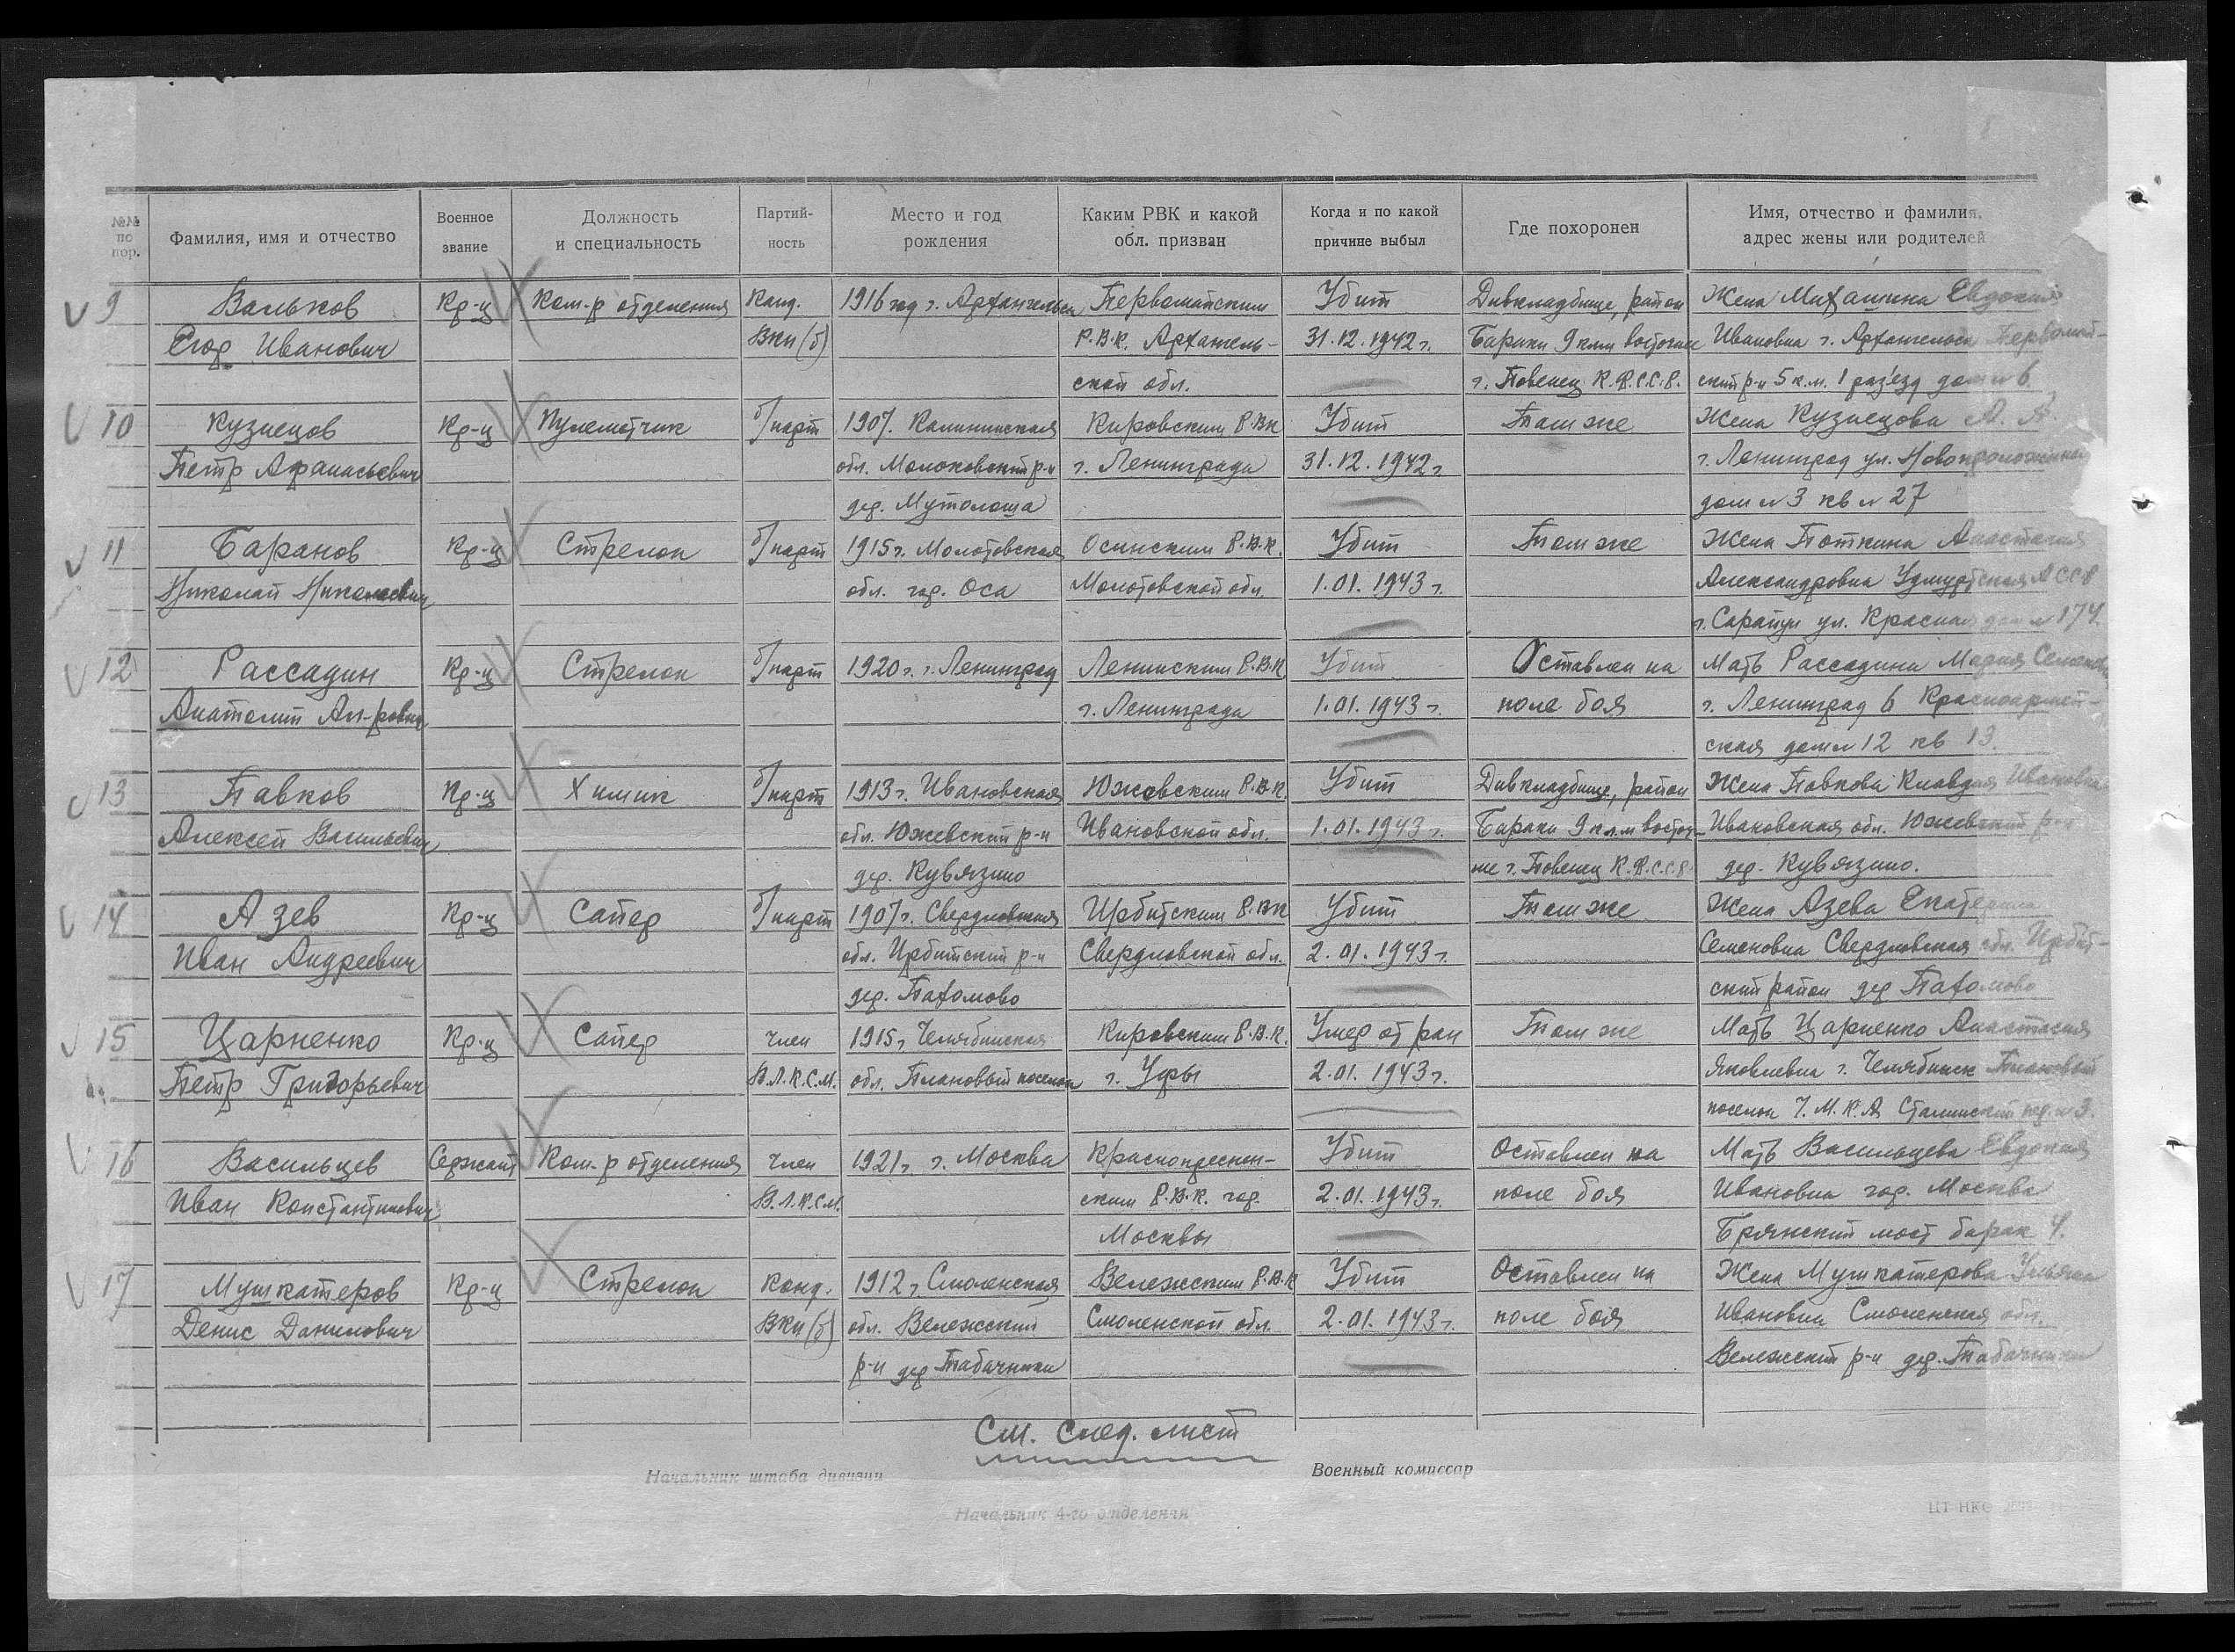 №№ по пор.
Фамилия, имя и отчество
Военное звание
Должность и специальность
Партий- ность
Место и год рождения
Каким РВК и какой обл. призван
Когда и по какой причине выбыл
Где похоронен
Имя, отчество и фамилия, адрес жены или родителей
9 Вальков Кр-ц Ком-р отделения Канд. 1916 год г. Архангельск Первомайским Убит Дивкладбище, район Жена Михашина Евдокия
Егор Иванович ВКП(б) Р.В.К. Архангель- 31.12.1942 г. Бараки 9 клм восточнее Ивановна г. Архангельск Первомай-
ской обл. г. Повенец К.Ф.С.С.Р. ский р-н 5 к.м. 1 раз'езд дом № 6
10 Кузнецов Кр-ц Пулеметчик б/парт 1907. Калининская Кировским Р.ВК Убит Там же Жена Кузнецова А. А.
Петр Афанасьевич обл. Молоковский р-н г. Ленинграда 31.12.1942 г. г. Ленинград ул.
дер. Мутолоша дом № 3 кв № 27
11 Баранов Кр-ц Стрелок б/парт 1915 г. Молотовская Осинским Р.В.К. Убит Там же Жена Поткина Анастасия
Николай Николаевич обл. гор. Оса Молотовской обл. 1.01.1943 г. Александровна Удмуртская АССР
г. Сарапул ул. Красная дом № 174.
12 Рассадин Кр-ц Стрелок б/парт 1920 г. г. Ленинград Ленинским Р.ВК Убит Оставлен на Мать Рассадина Мария Семеновна
Анатолий Ал-рович г. Ленинграда 1.01.1943 г. поле боя г. Ленинград 6 Красноармей-
ская дом № 12 кв 13.
13 Павков Кр-ц Химик б/парт 1913 г. Ивановская Южевским Р.В.К. Убит Дивкладбище, район Жена Павкова Клавдия Ивановна
Алексей Васильевич обл. Южевский р-н Ивановской обл. 1.01.1943 г. Бараки 9 клм восточ- Ивановская обл. Южевский р-н
дер. Кувязино нее г. Повенец К.Ф.С.С.Р. дер. Кувязино.
14 Азев Кр-ц Сапер б/парт 1907 г. Свердловская Ирбитским Р.ВК Убит Там же Жена Азева Екатерина
Иван Андреевич обл. Ирбитский р-н Свердловской обл. 2.01.1943 г. Семеновна Свердловская обл. Ирбит-
дер. Пахомово ский район дер Пахомово
15 Царненко Кр-ц Сапер Член 1915 г. Челябинская Кировским Р.В.К. Умер от ран Там же Мать Царненко Анастасия
Петр Григорьевич В.Л.К.С.М. обл. Плановый поселок г. Уфы 2.01.1943 г. Яковлевна г. Челябинск Плановый
поселок
16 Васильцев Сержант Ком-р отделения Член 1921 г. г. Москва Краснопреснен- Убит Оставлен на Мать Васильцева Евдокия
Иван Константинович В.Л.К.С.М. ским Р.В.К. гор. 2.01.1943 г. поле боя Ивановна гор. Москва
Москвы Брянский мост барак 4.
17 Мушкатеров Кр-ц Стрелок Канд. 1912 г. Смоленская Вележским Р.В.К Убит Оставлен на Жена Мушкатерова Ульяна
Денис Данилович ВКП(б) обл. Вележский Смоленской обл. 2.01.1943 г. поле боя Ивановна Смоленская обл.
р-н дер Табачники Вележский р-н дер. Табачники
См. след. лист
Начальник штаба дивизии
Военный комиссар
Начальник 4-го отделения